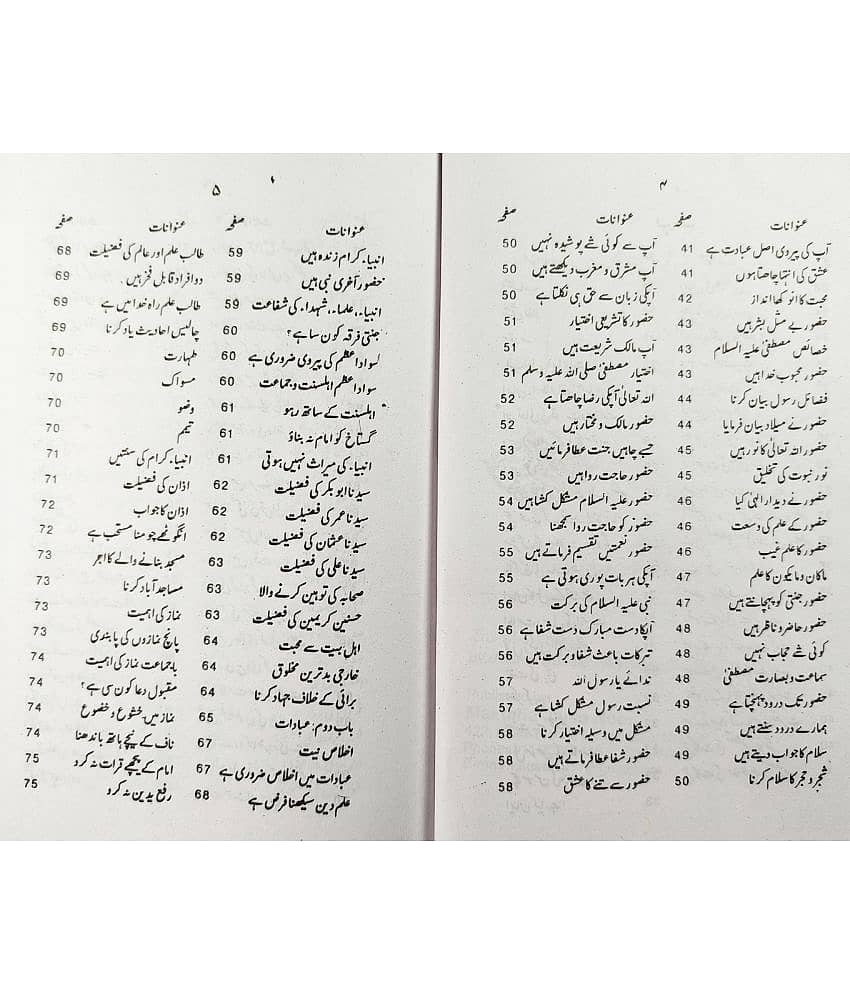 ۴
عنوانات صفحہ
آپ کی پیروی اصل عبادت ہے 41
عشق کی انتہا چاھتا ہوں 41
محبت کا انوکھا انداز 42
حضور بے مثل بشر ہیں 43
خصائص مصطفیٰ علیہ السلام 43
حضور محبوب خدا ہیں 43
فضائل رسول بیان کرنا 44
حضور نے میلاد بیان فرمایا 44
حضور اللہ تعالیٰ کا نور ہیں 45
نور نبوت کی تخلیق 45
حضور نے دیدار الٰہی کیا 46
حضور کے علم کی وسعت 46
حضور کا علم غیب 46
ماکان و مایکون کا علم 47
حضور جنتی کو پہچانتے ہیں 47
حضور حاضر و ناظر ہیں 48
کوئی شے حجاب نہیں 48
سماعت و بصارت مصطفیٰ 48
حضور تک درود پہنچتا ہے 49
ہمارے درود سنتے ہیں 49
سلام کا جواب دیتے ہیں 49
شجر و حجر کا سلام کرنا 50
عنوانات صفحہ
آپ سے کوئی شے پوشیدہ نہیں 50
آپ مشرق و مغرب دیکھتے ہیں 50
آپکی زبان سے حق ہی نکلتا ہے 50
حضور کا تشریعی اختیار 51
آپ مالک شریعت ہیں 51
اختیار مصطفیٰ صلی اللہ علیہ وسلم 51
اللہ تعالیٰ آپکی رضا چاھتا ہے 52
حضور مالک و مختار ہیں 52
جسے چاہیں جنت عطا فرمائیں 53
حضور حاجت روا ہیں 53
حضور علیہ السلام مشکل کشا ہیں 54
حضور کو حاجت روا سمجھنا 54
حضور نعمتیں تقسیم فرماتے ہیں 55
آپکی ہر بات پوری ہوتی ہے 55
نبی علیہ السلام کی برکت 56
آپکا دست مبارک دست شفا ہے 56
تبرکات باعث شفا و برکت ہیں 56
ندائے یا رسول اللہ 57
نسبت رسول مشکل کشا ہے 57
مشکل میں وسیلہ اختیار کرنا 58
حضور شفا عطا فرماتے ہیں 58
حضور سے تنے کا عشق 58
۵
عنوانات صفحہ
انبیاء کرام زندہ ہیں 59
حضور آخری نبی ہیں 59
انبیاء، علماء، شہداء کی شفاعت 59
جنتی فرقہ کون سا ہے؟ 60
سواد اعظم کی پیروی ضروری ہے 60
سواد اعظم اہلسنت و جماعت 60
اہلسنت کے ساتھ رہو 61
گستاخ کو امام نہ بناؤ 61
انبیاء کی میراث نہیں ہوتی 61
سیدنا ابوبکر کی فضیلت 62
سیدنا عمر کی فضیلت 62
سیدنا عثمان کی فضیلت 62
سیدنا علی کی فضیلت 63
صحابہ کی توہین کرنے والا 63
حسنین کریمین کی فضیلت 63
اہل بیت سے محبت 64
خارجی بدترین مخلوق 64
برائی کے خلاف جہاد کرنا 64
باب دوم: عبادات 65
اخلاص نیت 67
عبادات میں اخلاص ضروری ہے 67
علم دین سیکھنا فرض ہے 68
عنوانات صفحہ
طالب علم اور عالم کی فضیلت 68
دو افراد قابل فخر ہیں 69
طالب علم راہ خدا میں ہے 69
چالیس احادیث یاد کرنا 69
طہارت 70
مسواک 70
وضو 70
تیمم 70
انبیاء کرام کی سنتیں 71
اذان کی فضیلت 71
اذان کا جواب 72
انگوٹھے چومنا مستحب ہے 72
مسجد بنانے والے کا اجر 73
مساجد آباد کرنا 73
نماز کی اہمیت 73
پانچ نمازوں کی پابندی 73
باجماعت نماز کی اہمیت 74
مقبول دعا کون سی ہے؟ 74
نماز میں خشوع و خضوع 74
ناف کے نیچے ہاتھ باندھنا 74
امام کے پیچھے قرات نہ کرو 75
رفع یدین نہ کرو 75